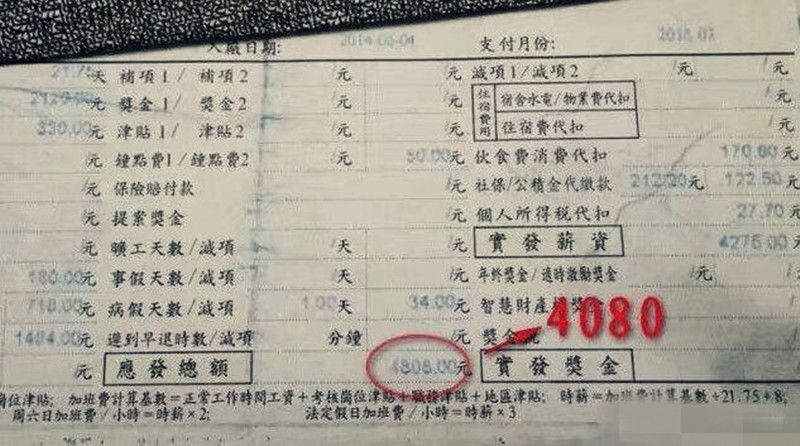 入廠日期: 2014-06-04 支付月份:
天 補項1/ 補項2 /元 /元 減項1/減項2 /元 /元
元 獎金1/ 獎金2 /元 /元 住宿費用 宿舍水電/物業費代扣 /元
330.00元 津貼1/ 津貼2 /元 /元 住宿費代扣 /元
/元 鐘點費1/鐘點費2 /元 50.00元 伙食費消費代扣 元
/元 保險賠付款 /元 社保/公積金代繳款 元 122.50元
/元 提案獎金 /元 個人所得稅代扣 27.70元
/元 曠工天數/減項 /天 /元 實發薪資 4275.00元
180.00元 事假天數/減項 /天 /元 年終獎金/適時激勵獎金 /元 /元
718.00元 病假天數/減項 1.00天 34.00元 智慧財產
元 遲到早退時數/減項 分鐘 /元 獎金 4080
應發總額 4808.00元 實發獎金
崗位津貼; 加班費計算基數=正常工作時間工資+考核崗位津貼+職務津貼+地區津貼; 時薪=加班費計算基數÷21.75÷8;
周六日加班費/小時=時薪×2; 法定假日加班費/小時=時薪×3